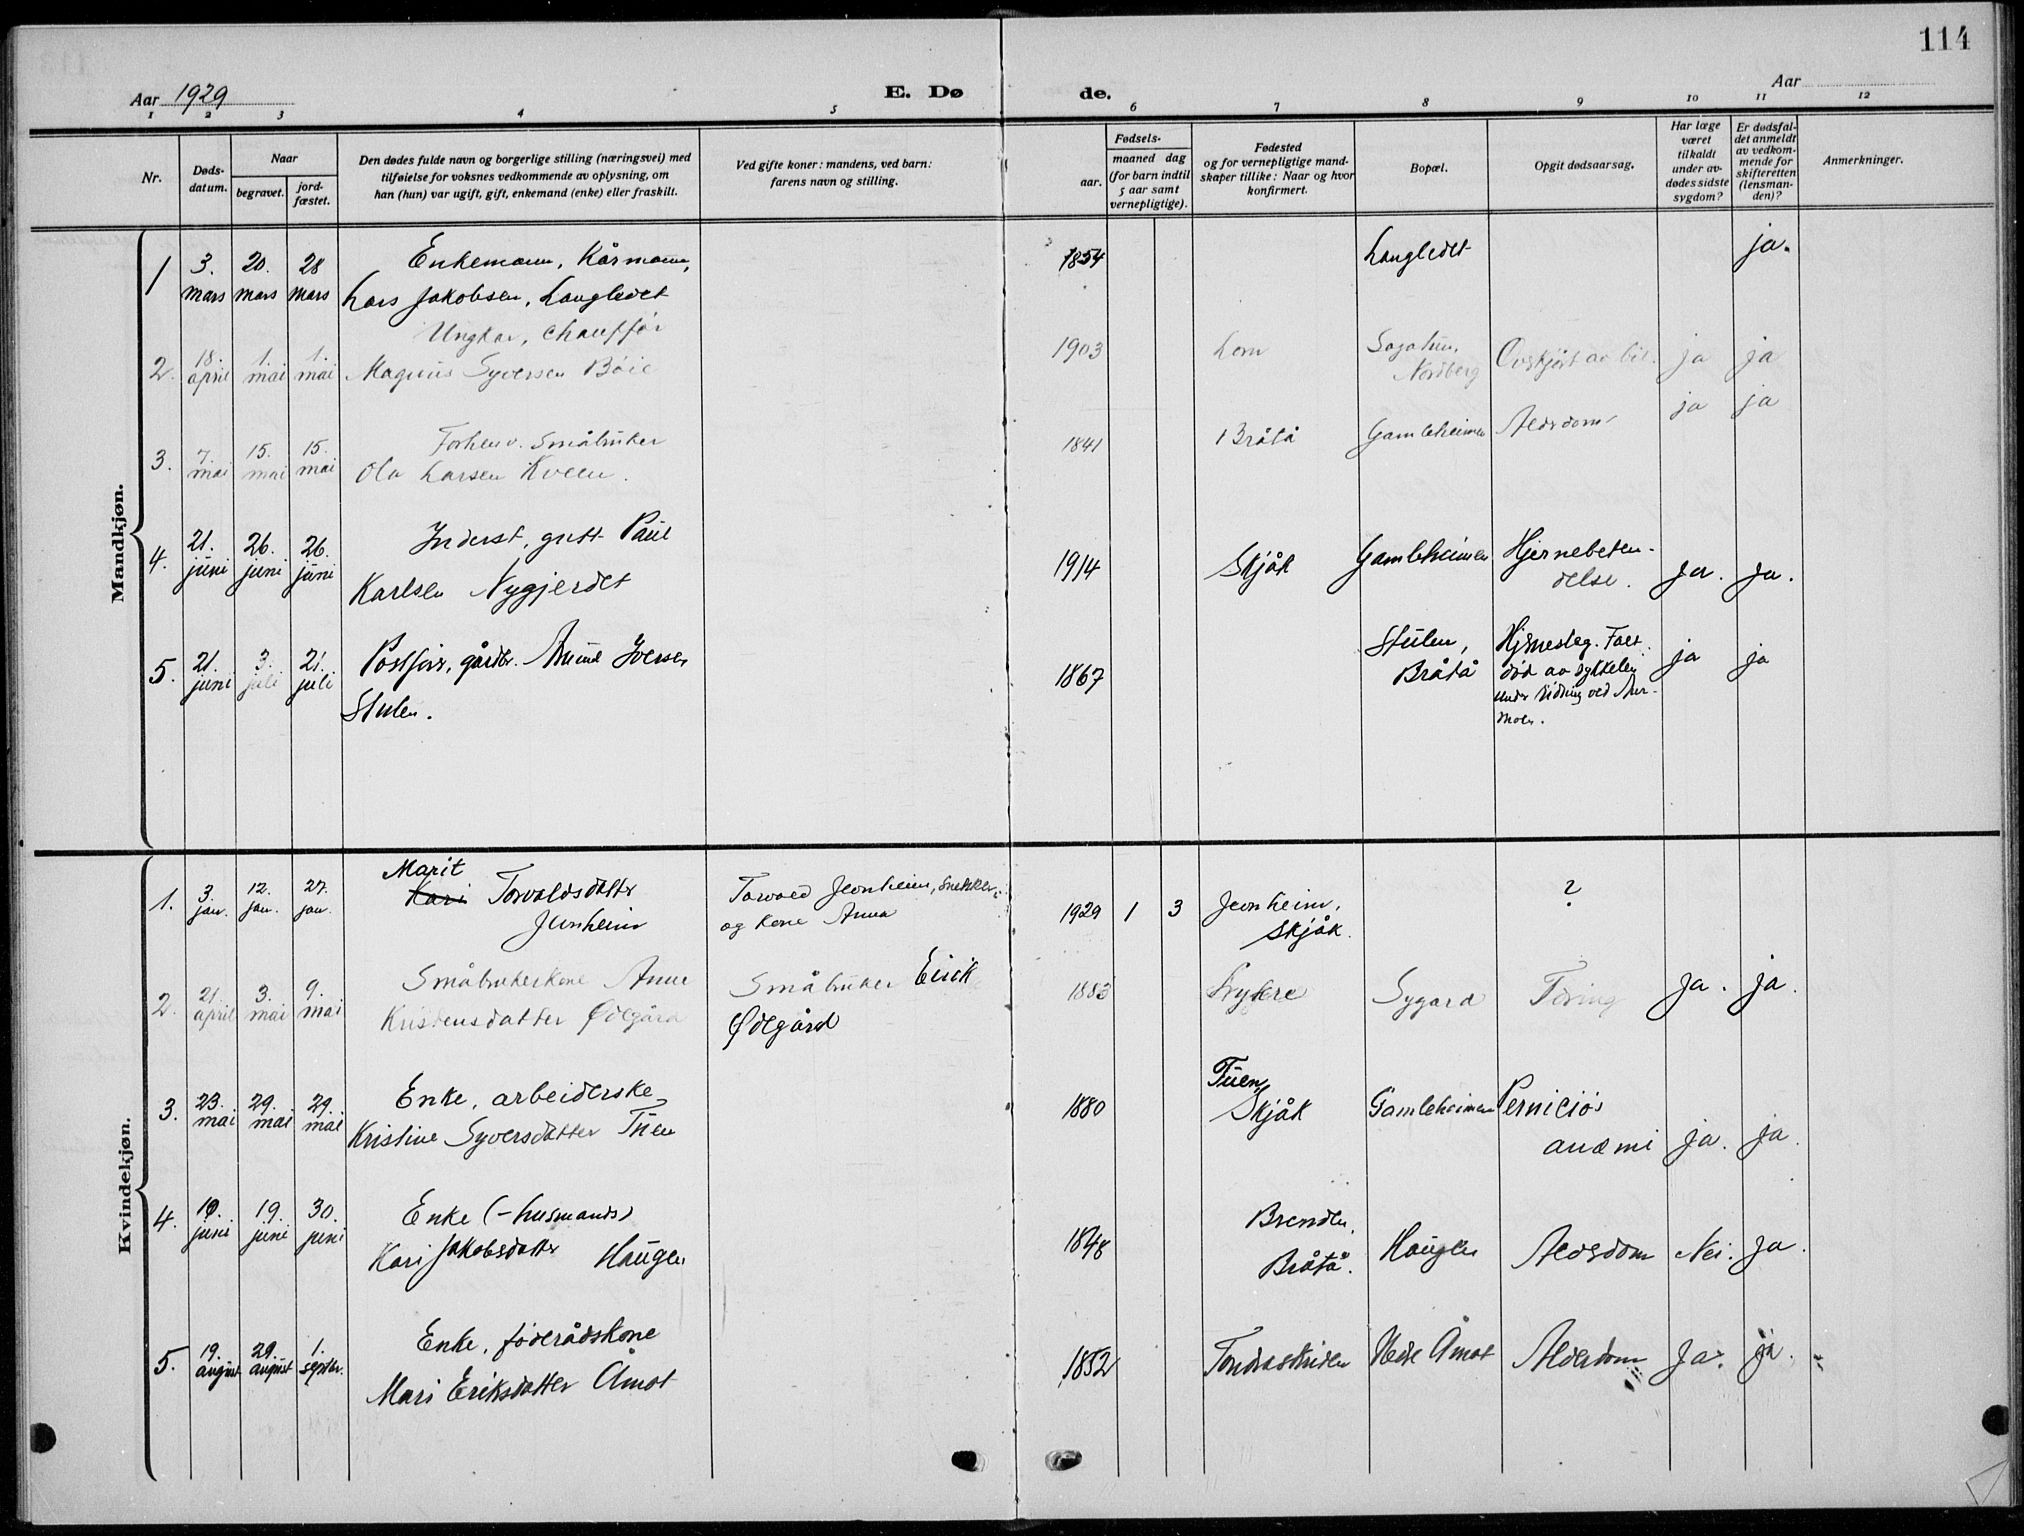 114
Aar 1929
E. Dø de.
Aar
1 2 3 4 5 6 7 8 9 10 11 12
Nr.
Døds-
datum.
Naar
begravet.
jord-
fæstet.
Den dødes fulde navn og borgerlige stilling (næringsvei) med
tilføielse for voksnes vedkommende av oplysning, om
han (hun) var ugift, gift, enkemand (enke) eller fraskilt.
Ved gifte koner: mandens, ved barn:
farens navn og stilling.
Fødsels-
aar.
maaned dag
(for barn indtil
5 aar samt
vernepligtige).
Fødested
og for vernepligtige mand-
skaper tillike: Naar og hvor
konfirmert.
Bopæl.
Opgit dødsaarsag.
Har læge
været
tilkaldt
under av-
dødes sidste
sygdom?
Er dødsfal-
det anmeldt
av vedkom-
mende for
skifteretten
(lensman-
den)?
Anmerkninger.
Mandkjøn.
1 3. 20. 28 Enkemann, Kårmann, 1854 Langledet ja.
mars mars mars Lars Jakobsen, Langledet
Ungkar, chauffør
2. 18. 1. 1. 1903 Lom ja ja
april mai mai Magnus Syversen Böie Nordberg
3. 7. 15. 15. Forhenv. Småbruker 1841 Bråtå Gamleheimen Aldsdom ja ja
mai mai mai Ola Larsen Kveen.
4. 21. 26. 26. Inderst, gutt Paul 1914 Skjåk Gamleheimen Hjernebeten-
juni juni juni Karlsen Nygjerdet delse. ja. ja.
5. 21. 3. 21. gårdbr. Amund Iversen 1867 Stulen, Hjerneslag. Falt
juni juli juli Bråtå død av sykkelen ja ja
Stulen. under ridning ved
moen.
Kvindekjøn.
1. 3. 12. 27. Marit
jan. jan. jan. Kari Torvaldsdatter Torvald Jonheim, snekker 1929 1 3 Jonheim, ?
Jonheim og kone Anna Skjåk.
2. 21. 3. 9. Småbrukerkone Anne Småbruker Eirik 1883 Sygard Tæring Ja. ja.
april mai mai Kristensdatter Ødegård Ødegård
3. 23. 29. 29. Enke, arbeiderske 1880 Tuen Gamleheimen Perniciøs
mai mai mai Kristine Syversdatter Tuen Skjåk anæmi ja. ja.
4. 10. 19. 30. Enke (-husmands) 1848 Brenden,
juni juni juni Kari Jakobsdatter Haugen Bråtå. Haugen Aldsdom Nei. ja.
5. 19. 29. 1. Enke, føderådskone 1852 Nedre Åmot Alderdom Ja. ja.
august august septbr. Mari Eriksdatter Åmot